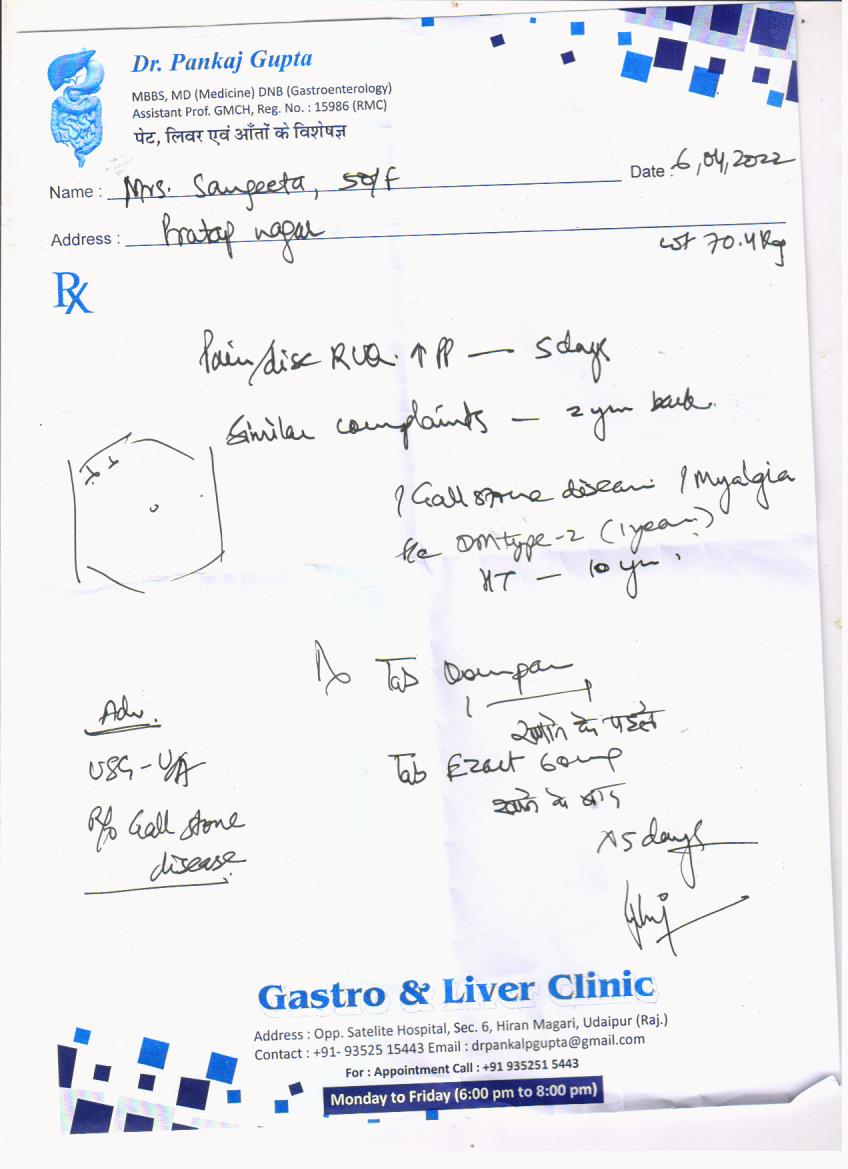 Dr. Pankaj Gupta
MBBS, MD (Medicine) DNB (Gastroenterology)
Assistant Prof. GMCH, Reg. No. : 15986 (RMC)
पेट, लिवर एवं आँतों के विशेषज्ञ
Name : Mrs. Sangeeta, 50/F
Date : 6/04/2022
Address : Pratap nagar
wt 70.4 Kg
Rx
Pain/disc RUQ. ↑ PP — 5 days
Similar complaints — 2 yrs back.
Gall stone disease / Myalgia
DM type-2 (1 year)
HT — 10 yrs
Tab
खाने के पहले
Tab
खाने के बाद
x 5 days
Adv.
USG - U/A
R/o Gall stone
disease
Gastro & Liver Clinic
Address : Opp. Satelite Hospital, Sec. 6, Hiran Magari, Udaipur (Raj.)
Contact : +91- 93525 15443 Email : drpankalpgupta@gmail.com
For : Appointment Call : +91 935251 5443
Monday to Friday (6:00 pm to 8:00 pm)